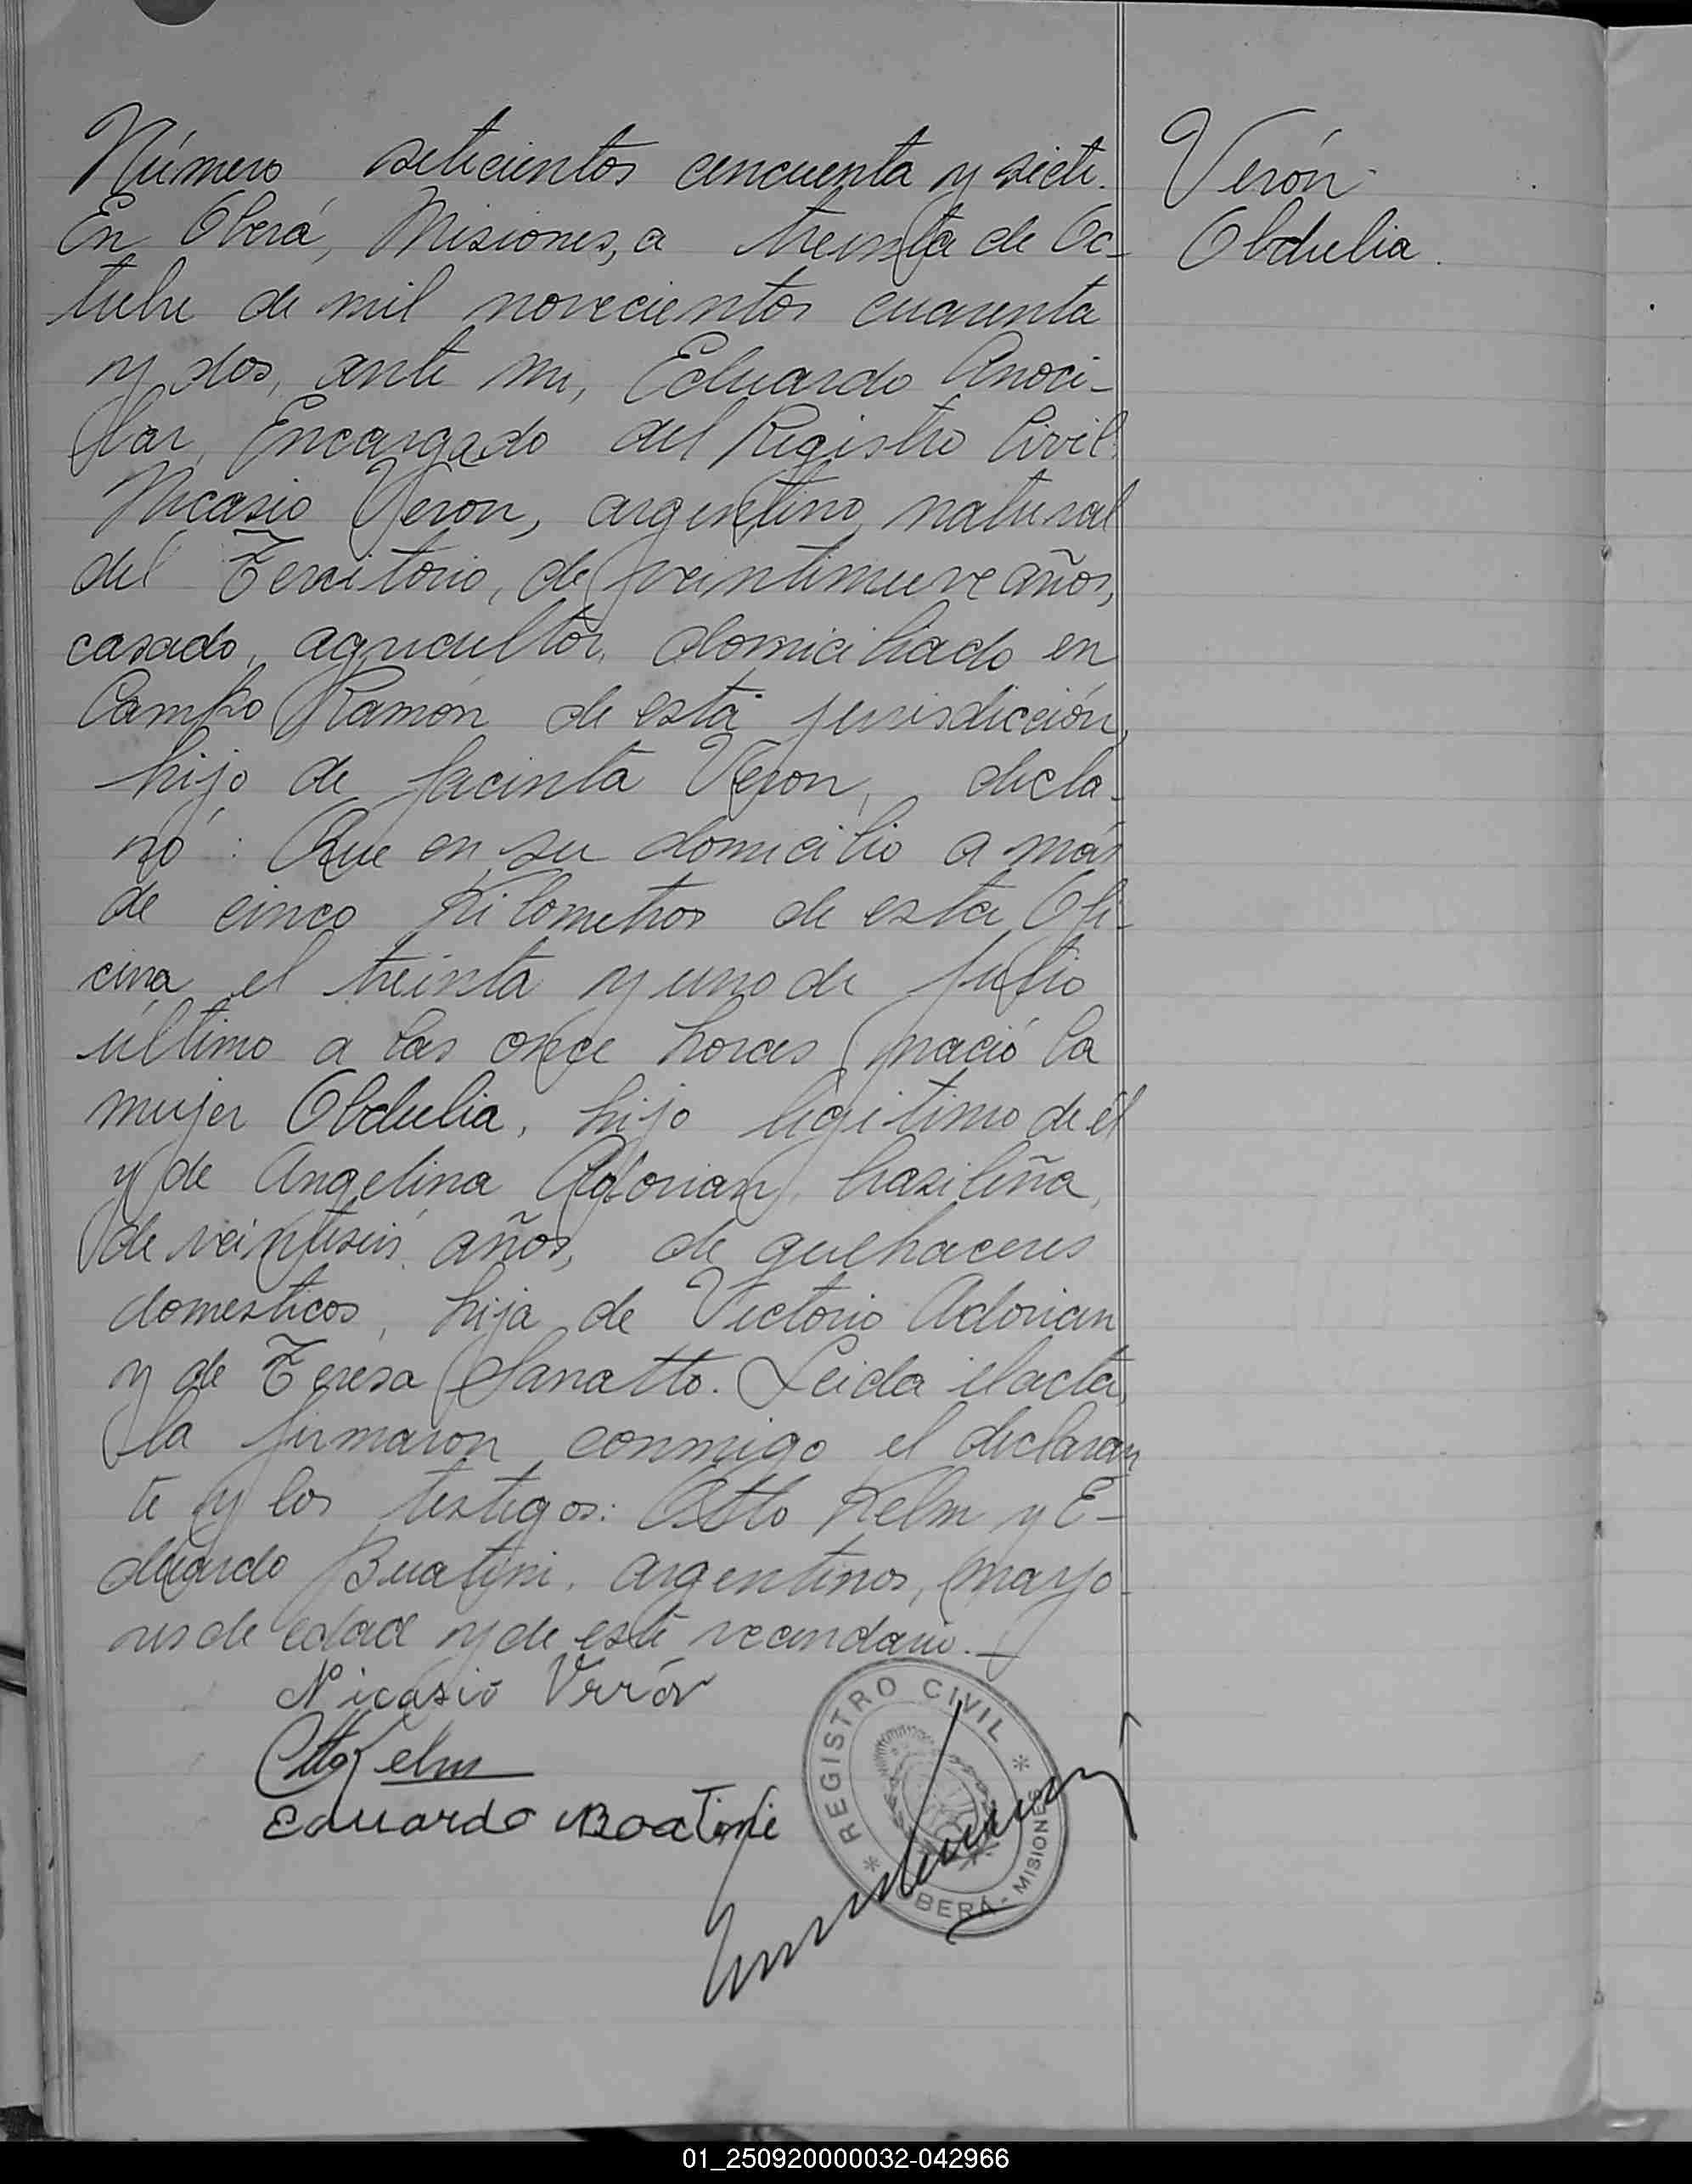 Número setecientos cincuenta y siete.
En Oberá, Misiones, a treinta de Oc-
tubre de mil novecientos cuarenta
y dos, ante mi, Eduardo Anoci-
bar, Encargado del Registro Civil:
Nicasio Veron, argentino, natural
del Territorio, de veintinueve años,
casado, agricultor, domiciliado en
Campo Ramón de esta jurisdicción,
hijo de Jacinta Veron, decla-
ró: Que en su domicilio a más
de cinco Kilometros de esta Ofi-
cina el treinta y uno de Julio
último a las once horas nació la
mujer Obdulia, hijo legitimo de él
y de Angelina Adorian, brasileña,
de veintiseis años, de quehaceres
domesticos, hija de Victorio Adorian
y de Teresa Sanatto. Leida el acta,
la firmaron conmigo el declaran
te y los testigos: Otto Kelm y E-
duardo Buatini, argentinos, mayo-
res de edad y de este vecindario.-
Verón
Obdulia.
Nicasio Verón
Otto Kelm
Eduardo Boatini
* REGISTRO CIVIL *
OBERÁ - MISIONES
01_250920000032-042966